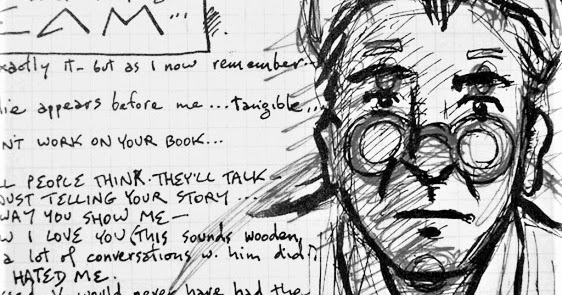 EAM...
exactly it - but as I now remember..
appears before me...tangible...
N'T WORK ON YOUR BOOK...
PEOPLE THINK. THEY'LL TALK -
JUST TELLING YOUR STORY ...
WAY YOU SHOW ME -
I LOVE YOU (THIS sounds wooden,
a lot of conversations w. him did).
HATED ME.
would never have had the